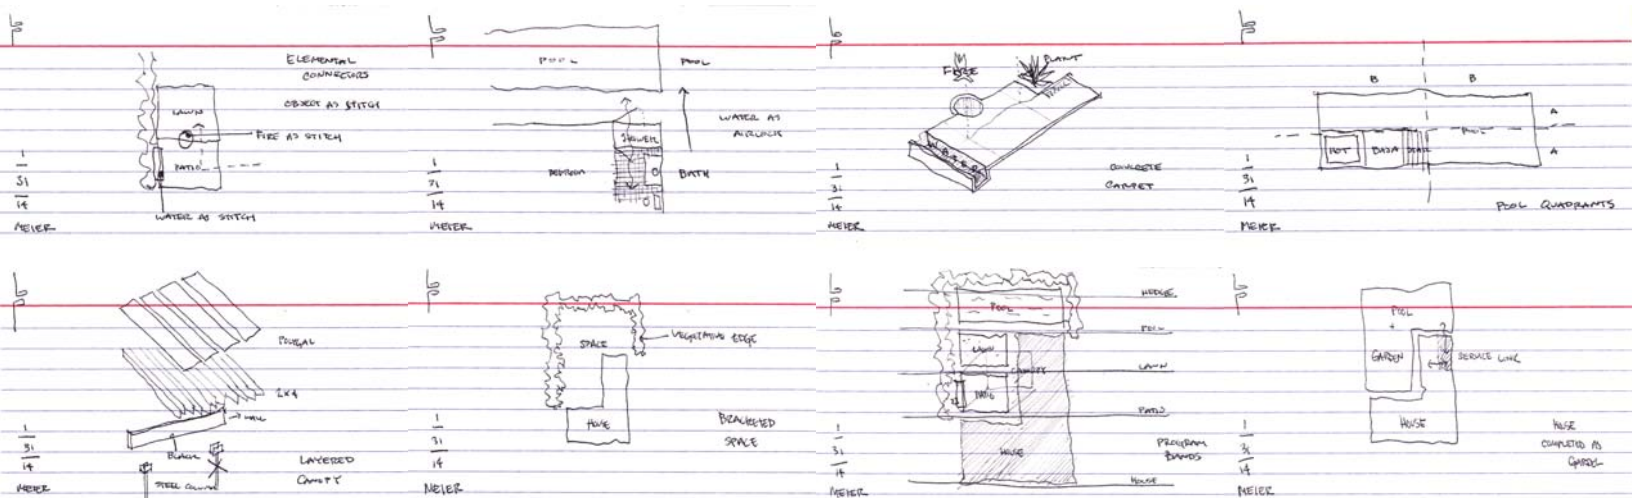 ELEMENTAL
CONNECTORS
OBJECT AS STITCH
LAWN
FIRE AS STITCH
PATIO
WATER AS STITCH
1
31
14
MEIER
POOL
POOL
WATER AS
AIRLOCK
SHOWER
BEDROOM
BATH
1
31
14
MEIER
FIRE
PLANT
WATER
CONCRETE
CARPET
1
31
14
MEIER
B
B
A
POOL
HOT
BAJA
A
POOL QUADRANTS
1
31
14
MEIER
POLYGAL
2x4
WALL
BLACK
LAYERED
CANOPY
STEEL COLUMN
1
31
14
MEIER
VEGETATIVE EDGE
SPACE
HOUSE
BRACKETED
SPACE
1
31
14
MEIER
HEDGE
POOL
POOL
LAWN
CANOPY
LAWN
PATIO
PATIO
PROGRAM
BANDS
HOUSE
HOUSE
1
31
14
MEIER
POOL
+
GARDEN
SERVICE LINK
HOUSE
HOUSE
COMPLETED AS
GARDEN
1
31
14
MEIER